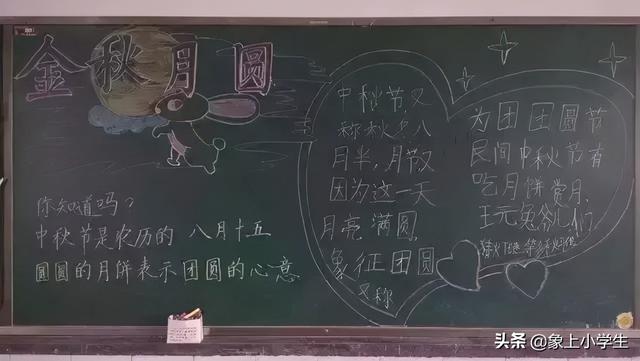 金秋月圆
你知道吗？
中秋节是农历的 八月十五
圆圆的月饼表示团圆的心意
中秋节,又
称秋夕、八
月半,月节又
因为这一天
月亮满圆,
象征团圆
又称
为团团圆节
民间中秋节有
吃月饼赏月,
玩兔爷儿
头条 @象上小学生